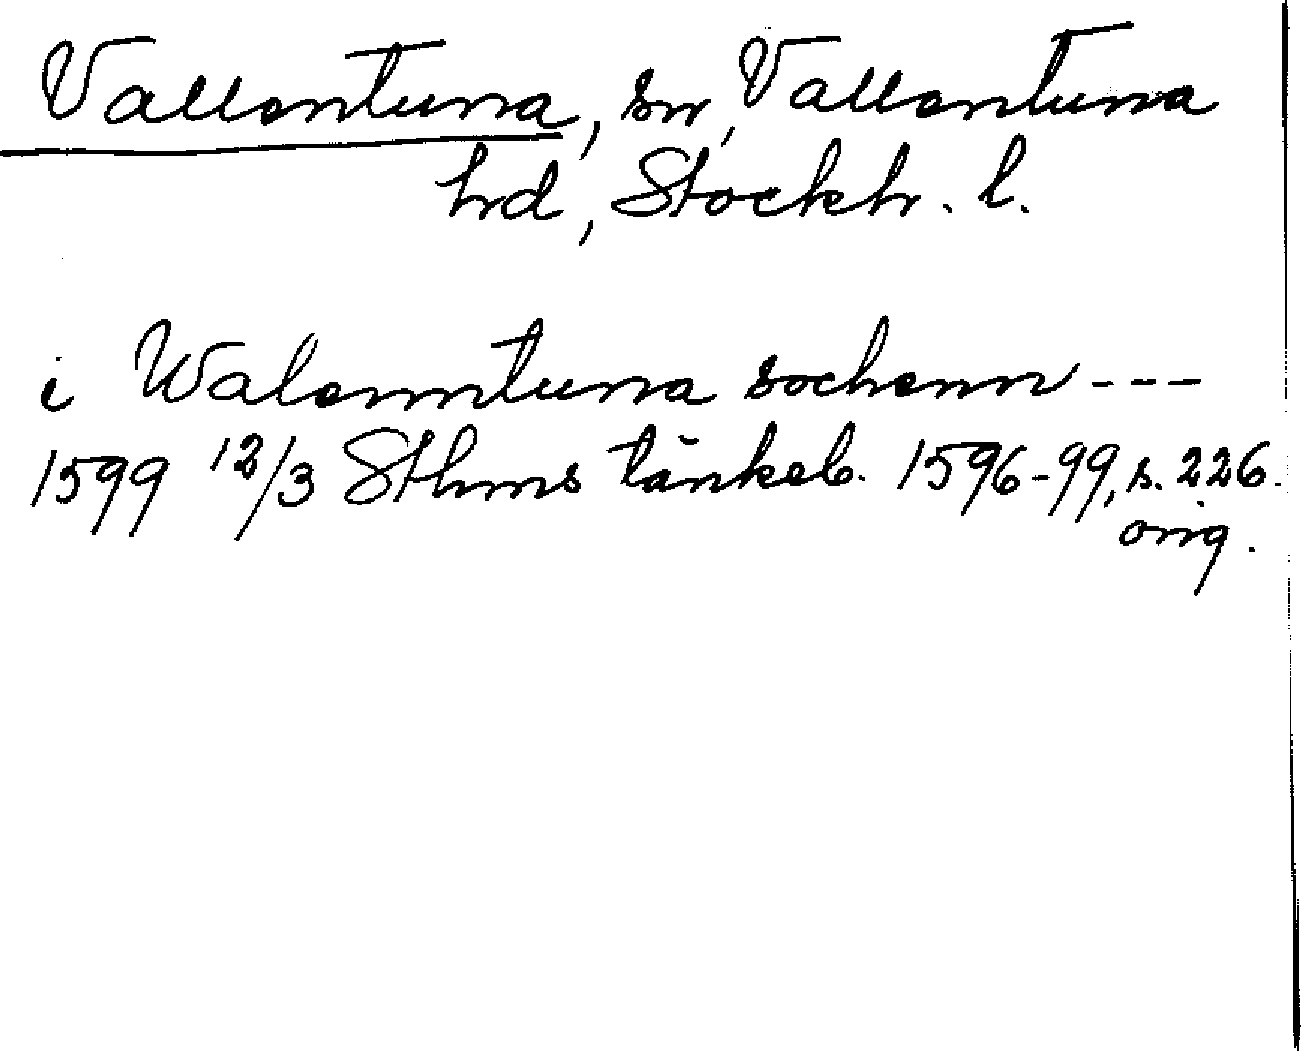 Vallentuna, sn, Vallentuna
hd, Stockh. l.
i Walenntuna sochenn ---
1599 12/3 Sthms tänkeb. 1596-99, s. 226.
orig.